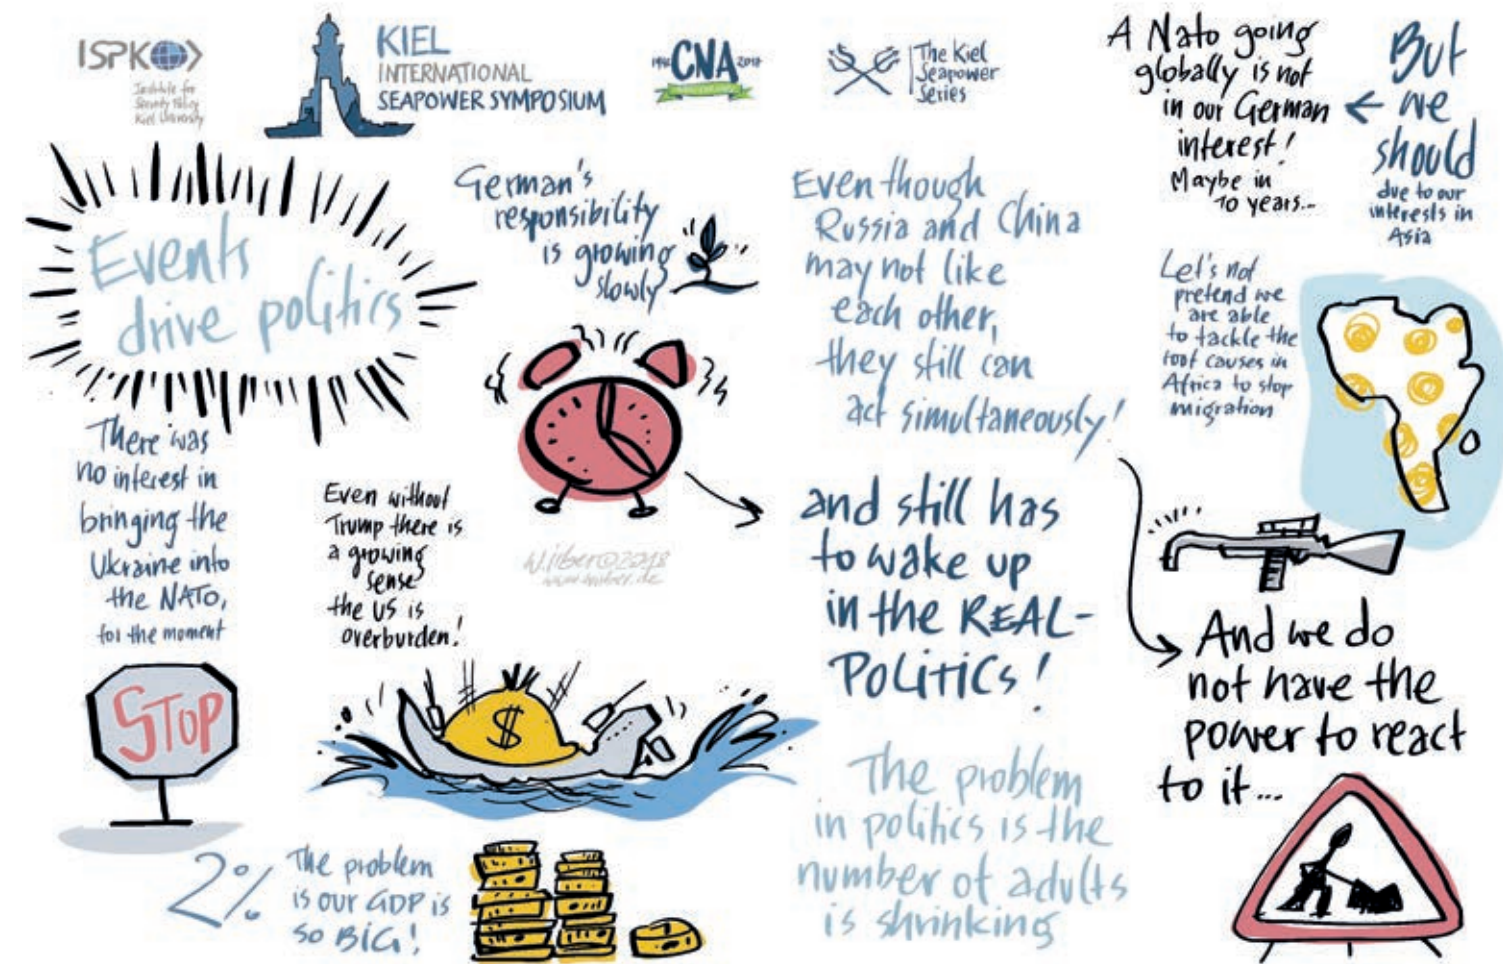 ISPK
Institute for
Security Policy
Kiel University
KIEL
INTERNATIONAL
SEAPOWER SYMPOSIUM
CNA
The Kiel
Seapower
Series
A Nato going
globally is not
in our German
interest!
Maybe in
10 years...
But
we
should
due to our
interests in
Asia
Events
drive politics
German's
responsibility
is growing
slowly
Even though
Russia and China
may not like
each other,
they still can
act simultaneously!
Let's not
pretend we
are able
to tackle the
root causes in
Africa to stop
migration
There was
no interest in
bringing the
Ukraine into
the NATO,
for the moment
STOP
Even without
Trump there is
a growing
sense
the US is
overburden!
and still has
to wake up
in the REAL-
POLITICS!
And we do
not have the
power to react
to it...
$
2%
The problem
is our GDP is
so BIG!
The problem
in politics is the
number of adults
is shrinking